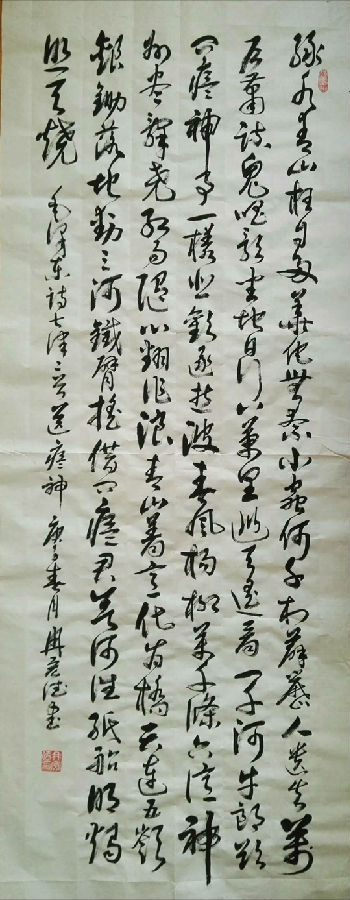 綠水青山枉自多華佗無奈小蟲何千村薜荔人遺矢萬
戶蕭疏鬼唱歌坐地日行八萬里巡天遙看一千河牛郎欲
問瘟神事一樣悲歡逐逝波春風楊柳萬千條六億神
州盡舜堯紅雨隨心翻作浪青山著意化為橋天連五嶺
銀鋤落地動三河鐵臂搖借問瘟君欲何往紙船明燭
照天燒 毛澤東詩七律二首送瘟神 庚子春月 書